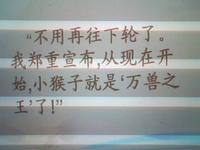 “不用再往下轮了。
我郑重宣布,从现在开
始,小猴子就是‘万兽之
王’了!”